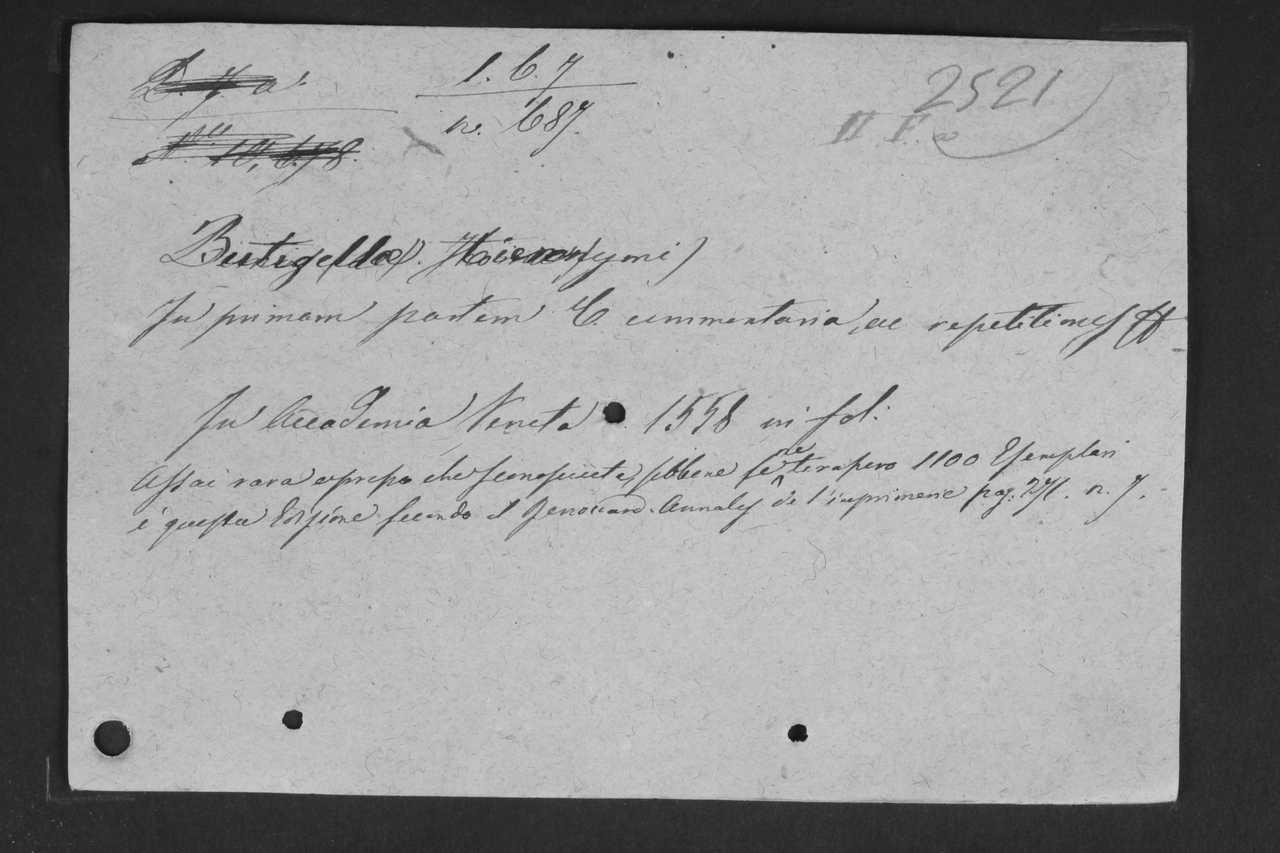 l. 6. 7
n. 687.
2521
II F. a
Butigella (Hieronymi)
In primam partem C. commentaria, ac repetitiones ff
In Academia Veneta 1558 in fol:
Assai rara e presso che sconosciuta, sebbene se ne tirapero 1100 Esemplari
è questa Edizione secondo il Renouard. Annales de l'imprimerie pag. 271. n. 7.